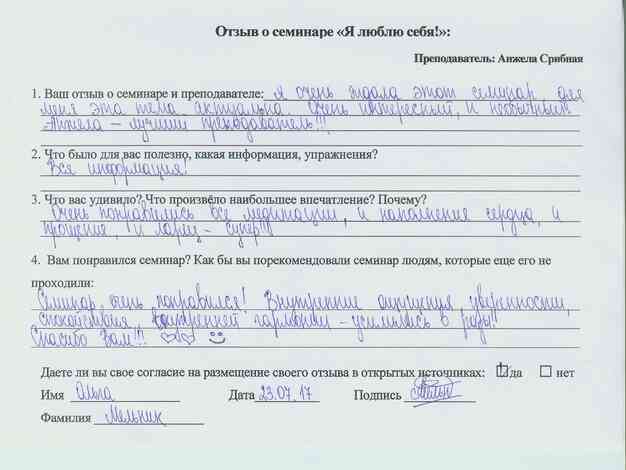 Отзыв о семинаре «Я люблю себя!»:
Преподаватель: Анжела Срибная
1. Ваш отзыв о семинаре и преподавателе: я очень ждала этот семинар для
меня эта тема актуальна. Очень интересный, и необычный!
Анжела – лучший преподаватель!!!
2. Что было для вас полезно, какая информация, упражнения?
Вся информация!
3. Что вас удивило? Что произвело наибольшее впечатление? Почему?
Очень понравились все медитации, и наполнение сердца, и
прощение, и ларец – супер!!!
4. Вам понравился семинар? Как бы вы порекомендовали семинар людям, которые еще его не
проходили:
Семинар очень понравился! Внутренние ощущения уверенности,
спокойствия внутренней гармонии – усилились в разы!
Спасибо Вам!!!
Даете ли вы свое согласие на размещение своего отзыва в открытых источниках: да нет
Имя Ольга Дата 23.07.17 Подпись
Фамилия Мельник